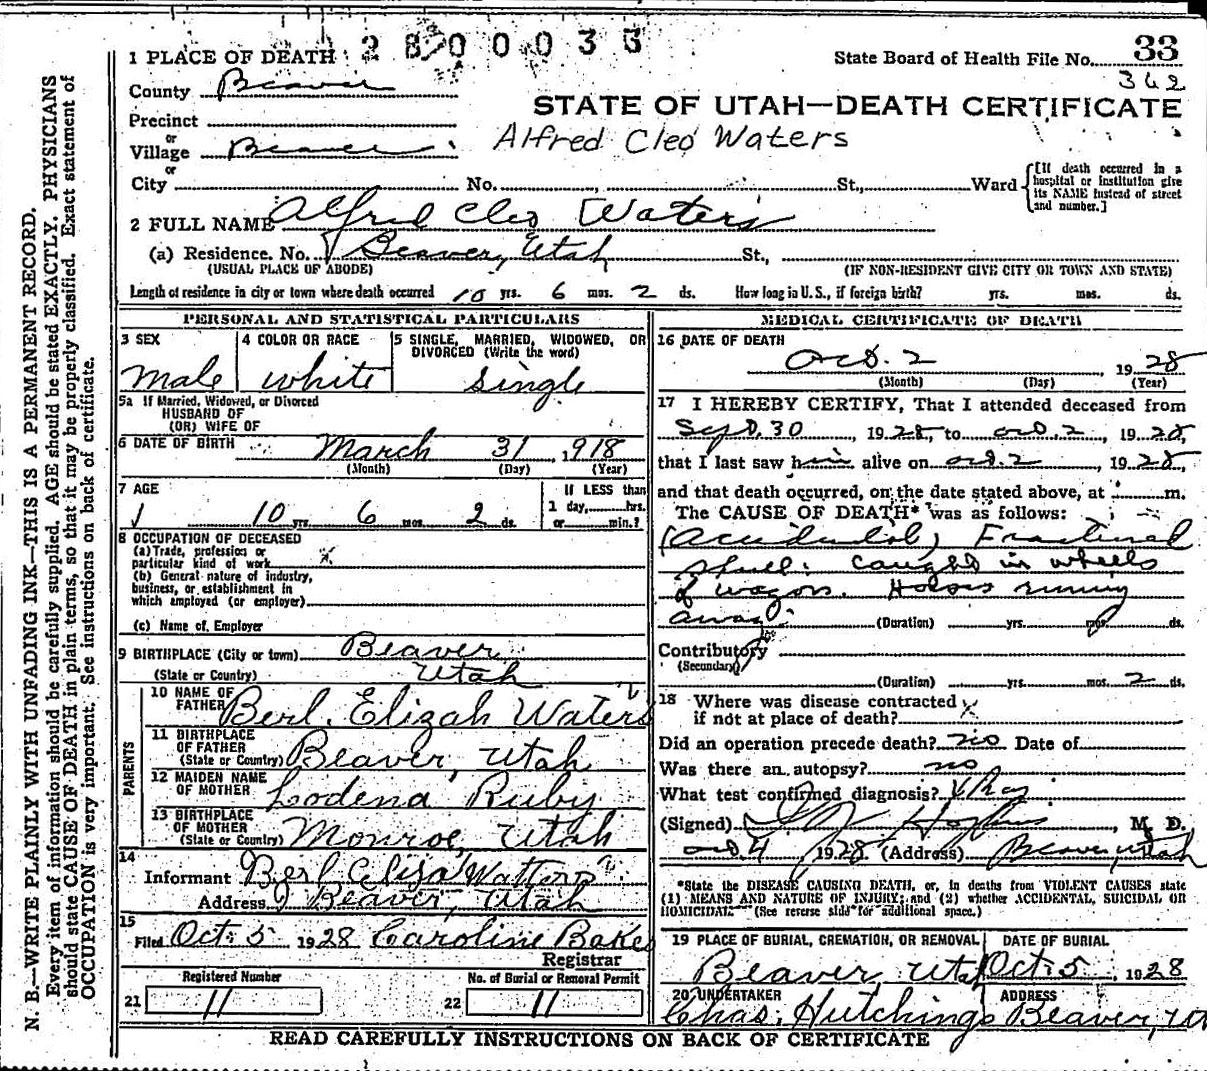 2800033
1 PLACE OF DEATH
State Board of Health File No. 33
362
County Beaver
STATE OF UTAH—DEATH CERTIFICATE
Precinct
or
Alfred Cleo Waters
Village Beaver
or
City No. , St., Ward
[If death occurred in a hospital or institution give its NAME instead of street and number.]
2 FULL NAME Alfred Cleo Waters
(a) Residence. No. Beaver, Utah St.,
(USUAL PLACE OF ABODE) (IF NON-RESIDENT GIVE CITY OR TOWN AND STATE)
Length of residence in city or town where death occurred 10 yrs. 6 mos. 2 ds. How long in U. S., if foreign birth? yrs. mos. ds.
PERSONAL AND STATISTICAL PARTICULARS
3 SEX
Male
4 COLOR OR RACE
white
5 SINGLE, MARRIED, WIDOWED, OR DIVORCED (Write the word)
Single
5a If Married, Widowed, or Divorced
HUSBAND OF
(OR) WIFE OF
6 DATE OF BIRTH March 31, 1918
(Month) (Day) (Year)
7 AGE
10 yrs. 6 mos. 2 ds.
If LESS than
1 day, hrs.
or min.?
8 OCCUPATION OF DECEASED
(a) Trade, profession or
particular kind of work x
(b) General nature of industry,
business, or establishment in
which employed (or employer)
(c) Name of Employer
9 BIRTHPLACE (City or town) Beaver
(State or Country) Utah
PARENTS
10 NAME OF
FATHER Berl. Elizah Waters
11 BIRTHPLACE
OF FATHER
(State or Country) Beaver, Utah
12 MAIDEN NAME
OF MOTHER Lodena Ruby
13 BIRTHPLACE
OF MOTHER
(State or Country) Monroe, Utah
14
Informant Berl Eliza Watters
Address Beaver, Utah
15
Filed Oct. 5 1928 Caroline Bakes
Registrar
Registered Number
21 11
No. of Burial or Removal Permit
22 11
MEDICAL CERTIFICATE OF DEATH
16 DATE OF DEATH
Oct. 2, 1928
(Month) (Day) (Year)
17 I HEREBY CERTIFY, That I attended deceased from
Sept. 30, 1928, to Oct. 2, 1928,
that I last saw him alive on Oct. 2, 1928,
and that death occurred, on the date stated above, at m.
The CAUSE OF DEATH* was as follows:
(Accidental) Fractured
skull: caught in wheels
of wagon. Horses running
away.
(Duration) yrs. mos. ds.
Contributory
(Secondary)
(Duration) yrs. mos. 2 ds.
18 Where was disease contracted
if not at place of death? x
Did an operation precede death? no Date of
Was there an autopsy? no
What test confirmed diagnosis? X Ray
(Signed) , M. D.
Oct. 4, 1928 (Address) Beaver, Utah
*State the DISEASE CAUSING DEATH, or, in deaths from VIOLENT CAUSES state
(1) MEANS AND NATURE OF INJURY; and (2) whether ACCIDENTAL, SUICIDAL OR
HOMICIDAL (See reverse side for additional space.)
19 PLACE OF BURIAL, CREMATION, OR REMOVAL
Beaver, Utah
DATE OF BURIAL
Oct. 5, 1928
20 UNDERTAKER
Chas. Hutchings
ADDRESS
Beaver,
READ CAREFULLY INSTRUCTIONS ON BACK OF CERTIFICATE
N. B.—WRITE PLAINLY WITH UNFADING INK—THIS IS A PERMANENT RECORD.
Every item of information should be carefully supplied. AGE should be stated EXACTLY. PHYSICIANS
should state CAUSE OF DEATH in plain terms, so that it may be properly classified. Exact statement of
OCCUPATION is very important. See instructions on back of certificate.